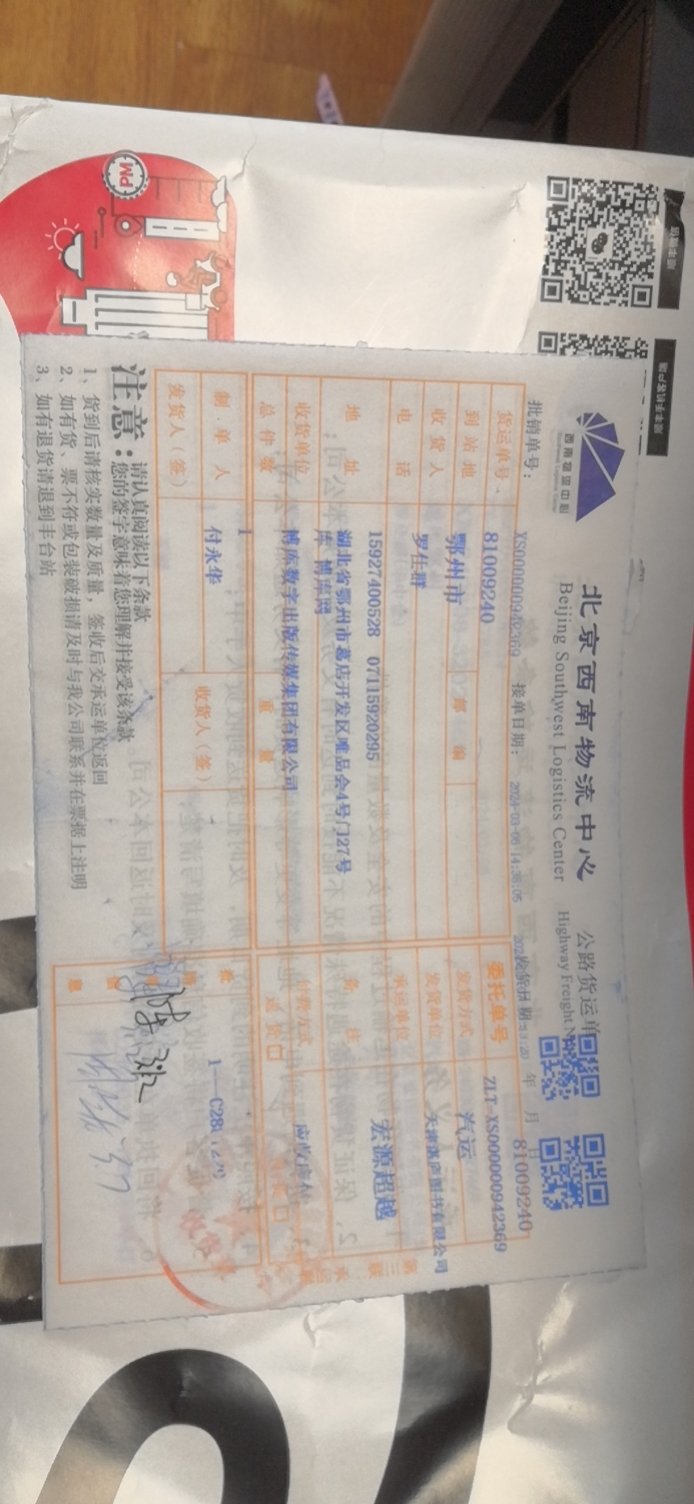 北京西南物流中心
Beijing Southwest Logistics Center
公路货运单
Highway Freight
西南物流中心
81009240
批销单号：
XS0000000942369
接单日期：
货运单号
81009240
委托单号
ZLT-XS0000000942369
到站地
鄂州市
邮编
发货方式
汽运
收货人
罗仕群
发货单位
电话
15927400528 07115920295
承运单位
宏源超越
地址
湖北省鄂州市葛店开发区唯品会4号门27号
库 博库网
备注
收货单位
博库数字出版传媒集团有限公司
付费方式
总件数
1
重量
送货口
制单人
付永华
收货人（签）
发货人（签）
注意：
请认真阅读以下条款
您的签字意味着您理解并接受该条款
1、货到后请核实数量及质量，签收后交承运单位返回
2、如有货、票不符或包装破损请及时与我公司联系并在票据上注明
3、如有退货请退到丰台站
PM